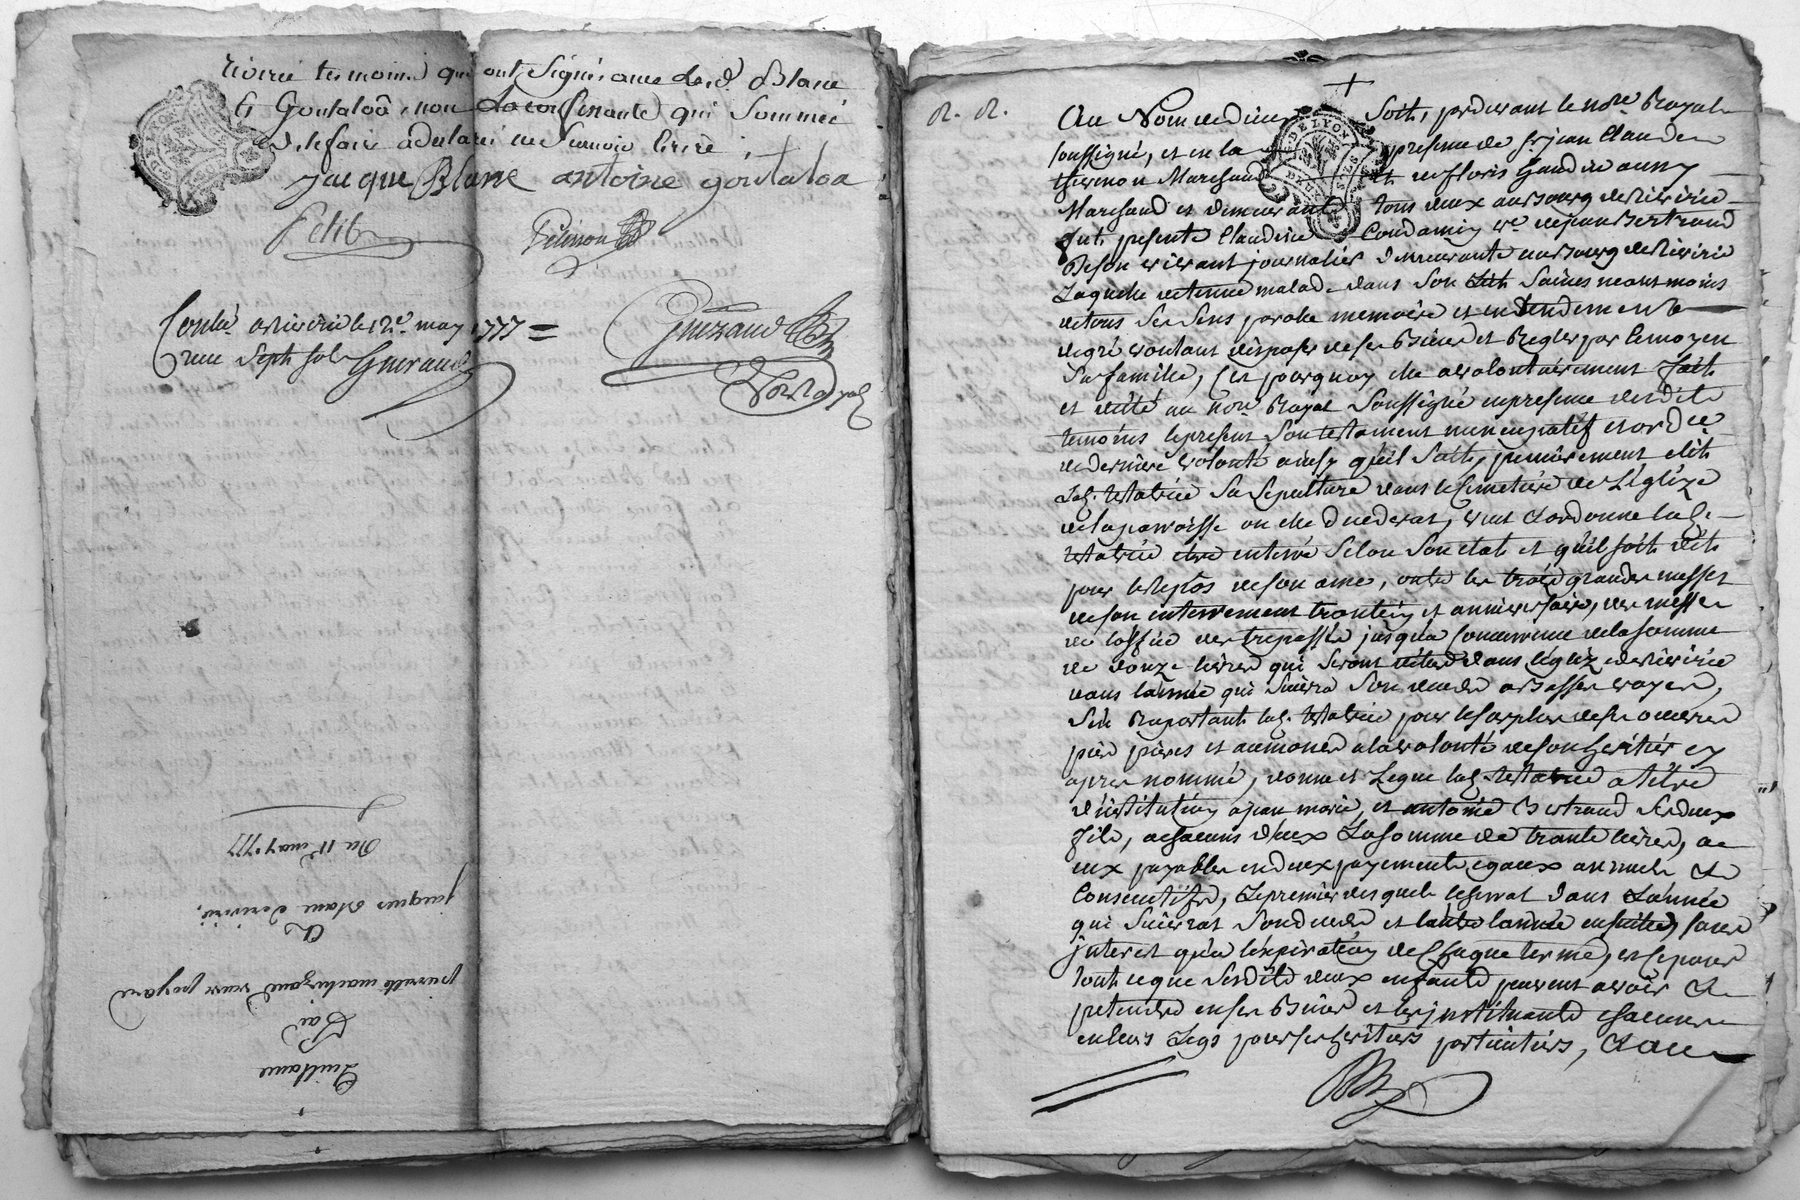 riverie temoins qui ont signé avec led. Blanc
et Goutaloâ, non la confinante qui sommée
de le faire a declaré ne scavoir ecrire,
jacque Blanc antoine goutaloa
Guerand
Conlé a riverie le 12e. may 1777 =
sept sols Guerand
Not. Royal
Quittance
pierrette veuve
A
jacques blanc de riverie
Du 11e may 1777
R. R.
Au Nom de dieu Soit, pardevant le notre Royal
soussigné, et en la presence de sr. jean Claude
thevenon Marchand et de floris Gaudin aussy
Marchand et demeurant tous deux au Bourg de Riverie
fut presente Claudine Condamin ve. de jean Bertrand
vivant journalier demeurante au Bourg de Riverie
Laquelle detenue malade dans son Lit Saine neantmoins
de tous ses Sens parole memoire et entendement
de gré voulant disposer de ses Biens et Regler par ce moyen
Sa famille, C'est pourquoy elle a volontairement fait
et dicté au notre Royal Soussigné en presence desdits
temoins le present Son testament nuncupatif et ord.re
de derniere volonté ainsy qu'il Suit, premierement elit
lad. testatrice Sa Sepulture dans le Cimetiere de L'église
de la paroisse ou elle decedera, veut et ordonne lad.
testatrice être enterré selon Son etat et qu'il soit dit
pour le repos de son ame, outre les trois grandes messes
de son enterrement trentin et anniversaire, des messes
de l'office des trepassés jusqu'a Concurrence de la somme
de douze livres qui seront dites dans l'eglize de riverie
dans l'année qui suivra son deces a Basses voyes,
S'en Raportant lad. testatrice pour le surplus de ses oeuvres
pies prieres et aumones a la volonté de son heritier cy
apres nommé, donne et Legue lad. testatrice a titre
d'institution a jean marie, et antoine Bertrand ses deux
fils, a chacuns d'eux La somme de trente livres, a
eux payable en deux payements egaux annuels et
Consecutifs, Le premier desquels se ferat dans L'année
qui Suivrat Son deces et l'autre l'année ensuitte, sans
interest qu'a l'expiration de Chaque terme, et ce pour
tout ce que Sesdits deux enfants peuvent avoir et
pretendre en ses Biens et les instituants chacuns
en leurs Legs pour ses heritiers particuliers, et au